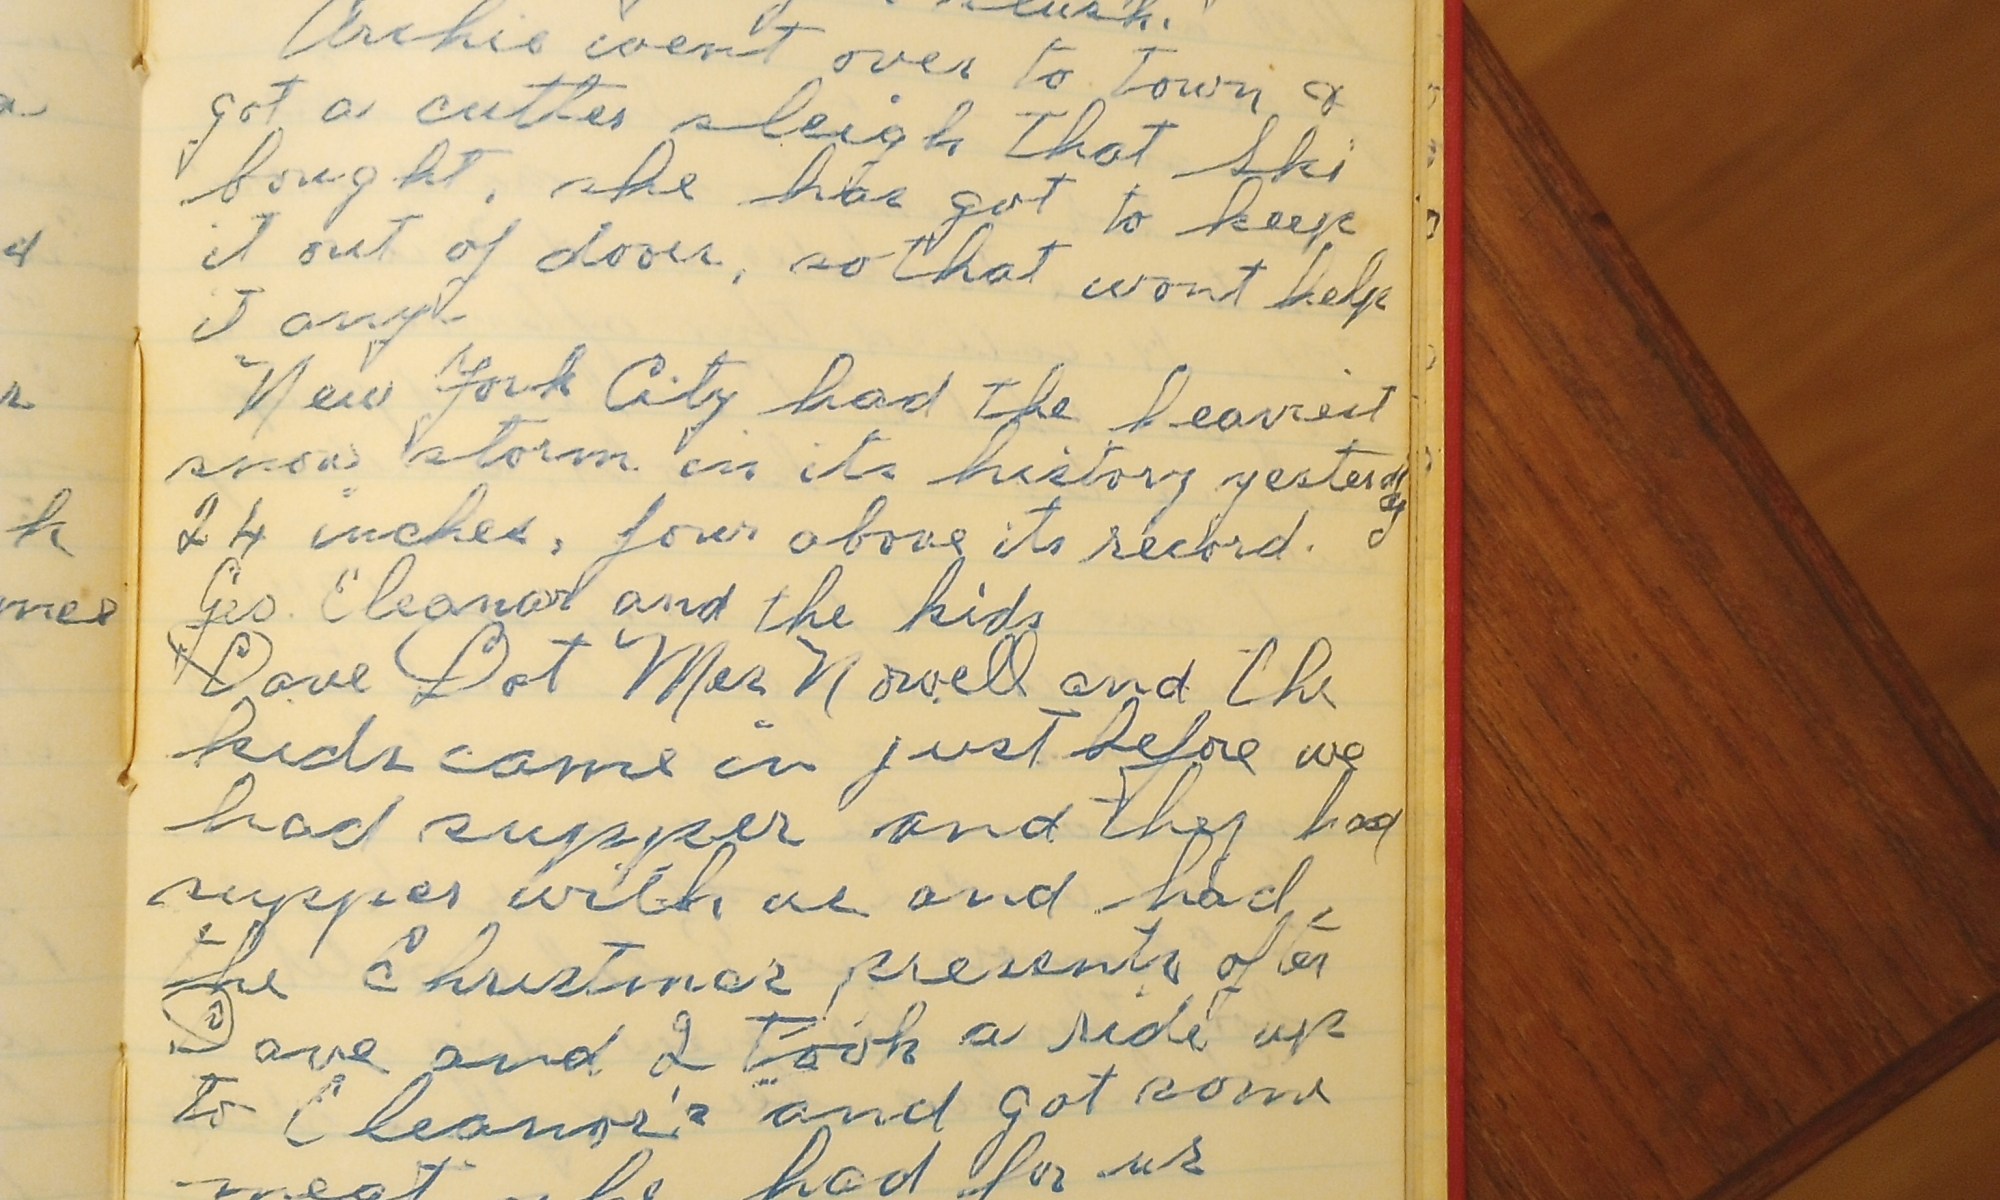 slush.
Archie went over to town &
got a cutter sleigh that Ski
bought, she has got to keep
it out of doors, so that wont help
it any.
New York City had the heaviest
snow storm in its history yesterday
24 inches, four above its record.
Geo. Eleanor and the kids
Dave Dot Mrs Nowell and the
kids came in just before we
had supper and they had
supper with us and had
the Christmas presents after
Dave and I took a ride up
to Eleanor's and got some
meat she had for us